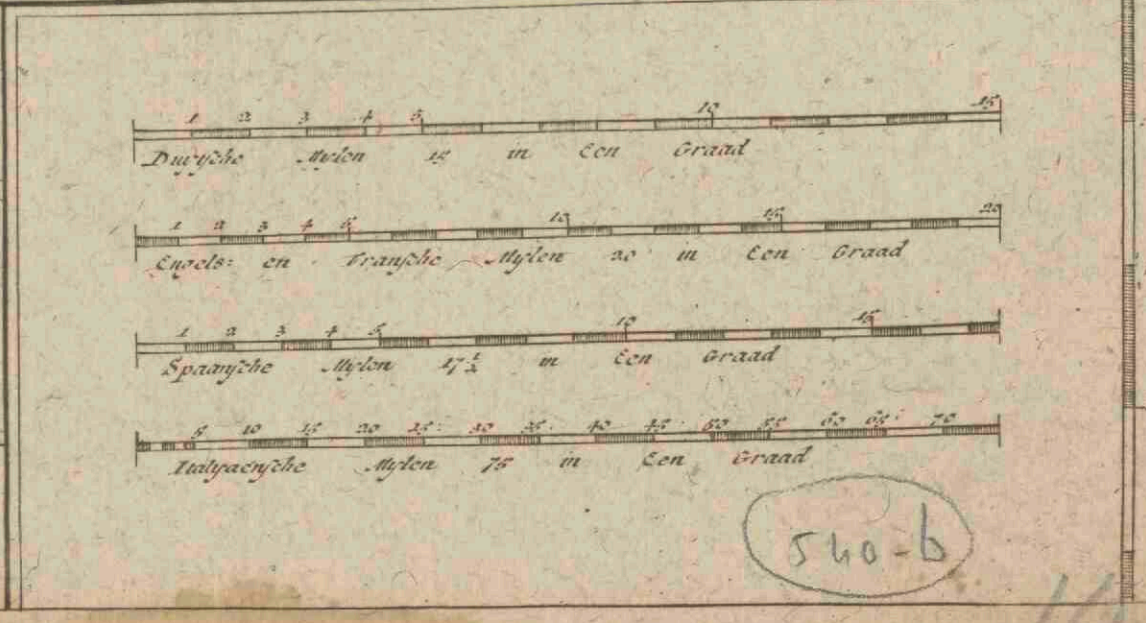 1 2 3 4 5 10 15
Duytsche Mylen 15 in Een Graad
1 2 3 4 5 10 15 20
Engels: en Fransche Mylen 20 in Een Graad
1 2 3 4 5 10 15
Spaansche Mylen 17 1/2 in Een Graad
5 10 15 20 25 30 35 40 45 50 55 60 65 70
Italyaensche Mylen 75 in Een Graad
540-b